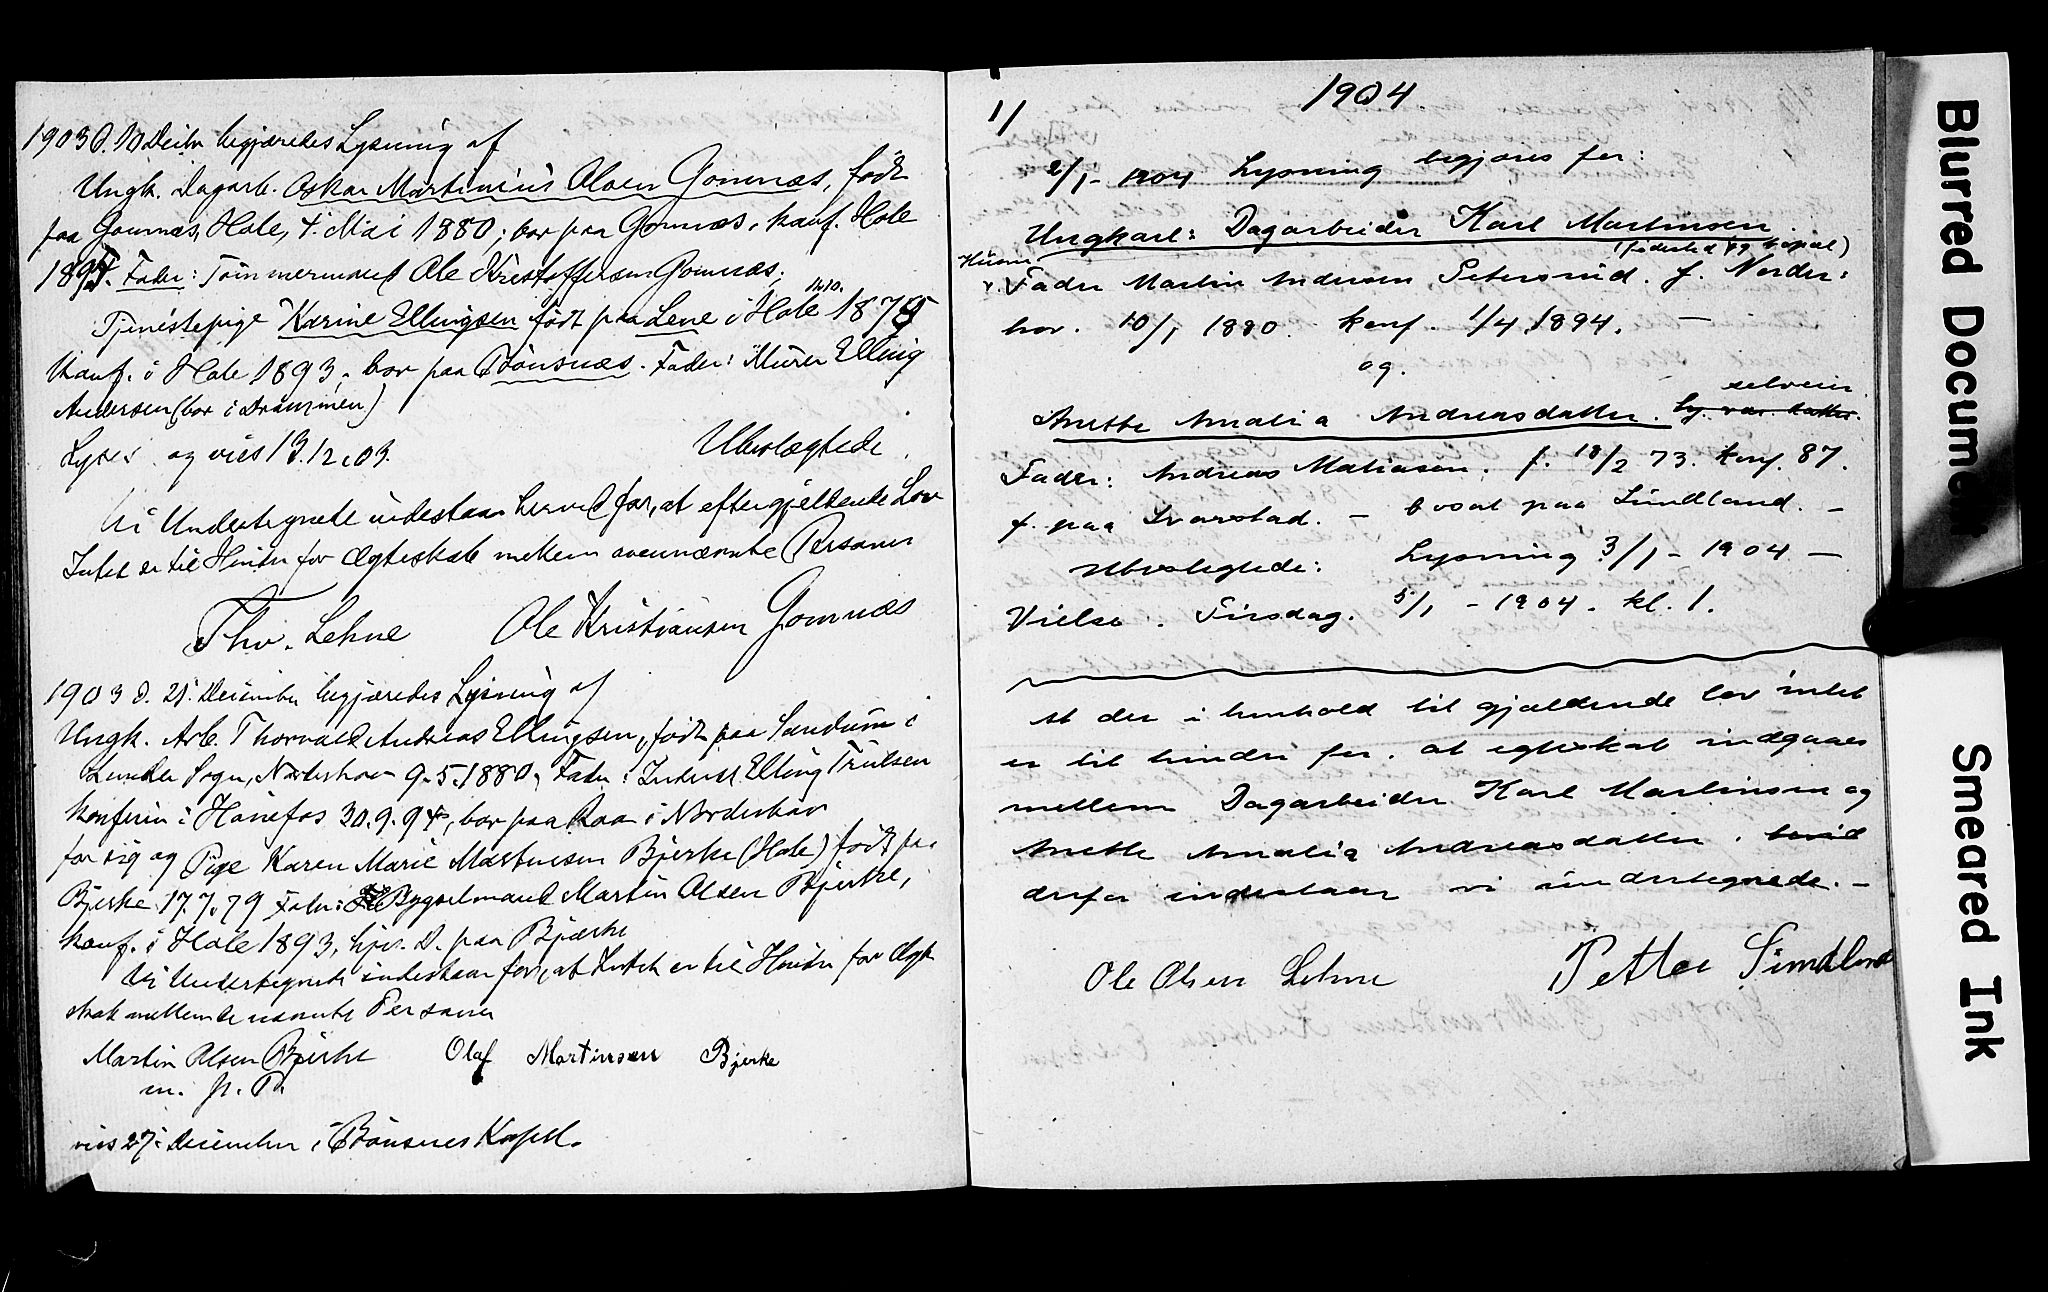 1903 d. 10 Decbr begjæredes Lysning af
Ungk. Dagarb. Oskar Martinius Olsen Gomnæs, født
paa Gomnæs, Hole, 4. Mai 1880, bor paa Gomnæs, konf. Hole
1894. Fader: Tømmermand Ole Kristoffersen Gomnæs;
Tjenestepige Karine Ellingsen født paa Lene i Hole 14.10. 1878
konf. i Hole 1893, bor paa Bönsnæs. Fader: Murer Elling
Andersen (bor i Drammen)
Lyses og vies 13.12.03. Ubeslægtede.
Vi Undertegnede indestaar herved for, at efter gjeldende Lov
Intet er til Hinder for Ægteskab mellem ovennævnte Personer
Tho. Lehne Ole Kristiansen Gomnæs
1903 d. 21. December begjæredes Lysning af
Ungk. Arb. Thorvald Andreas Ellingsen, født paa Sandum i
Lunder Sogn, Norderhov 9.5.1880, Fader: Inderst Elling Trulsen
konfirm i Hönefos 30.9.94, bor paa Raa i Norderhov
for sig og Pige Karen Marie Martinsen Bjerke (Hole) født paa
Bjerke 17.7.79 Fader: Bygselmand Martin Olsen Bjerke,
konf. i Hole 1893, hjv. D. paa Bjerke
Vi Undertegnede indestaar for, at Intet er til Hinder for Ægte
skab mellem de nævnte Personer
Martin Olsen Bjerke Olaf Martinsen Bjerke
m. p. P.
vies 27. December i Bönsnes Kapel.
1/ 1904
2/1 - 1904 Lysning begjæres for:
Ungkarl: Dagarbeider Karl Martinsen.
(fødested og kapel)
Husm.
Fader Martin Andersen Setersrud. f. Norder:
hov. 10/1 1880. konf. 1/4 1894. —
og.
selveier
Anette Amalia Andreasdatter.
Fader: Andreas Matiasen. f. 18/2 73. konf. 87.
f. paa Svarstad. — bosat paa Sundland. —
Ubeslegtede: Lysning 3/1 - 1904 —
Vielse. Tirsdag. 5/1 - 1904. kl. 1.
At der i henhold til gjældende lov intet
er til hinder for, at egteskab indgaaes
mellem Dagarbeider Karl Martinsen og
Anette Amalia Andreasdatter,
derfor indestaar vi undertegnede. —
Ole Olsen Lehne Petter Sundland
Blurred Document
Smeared Ink